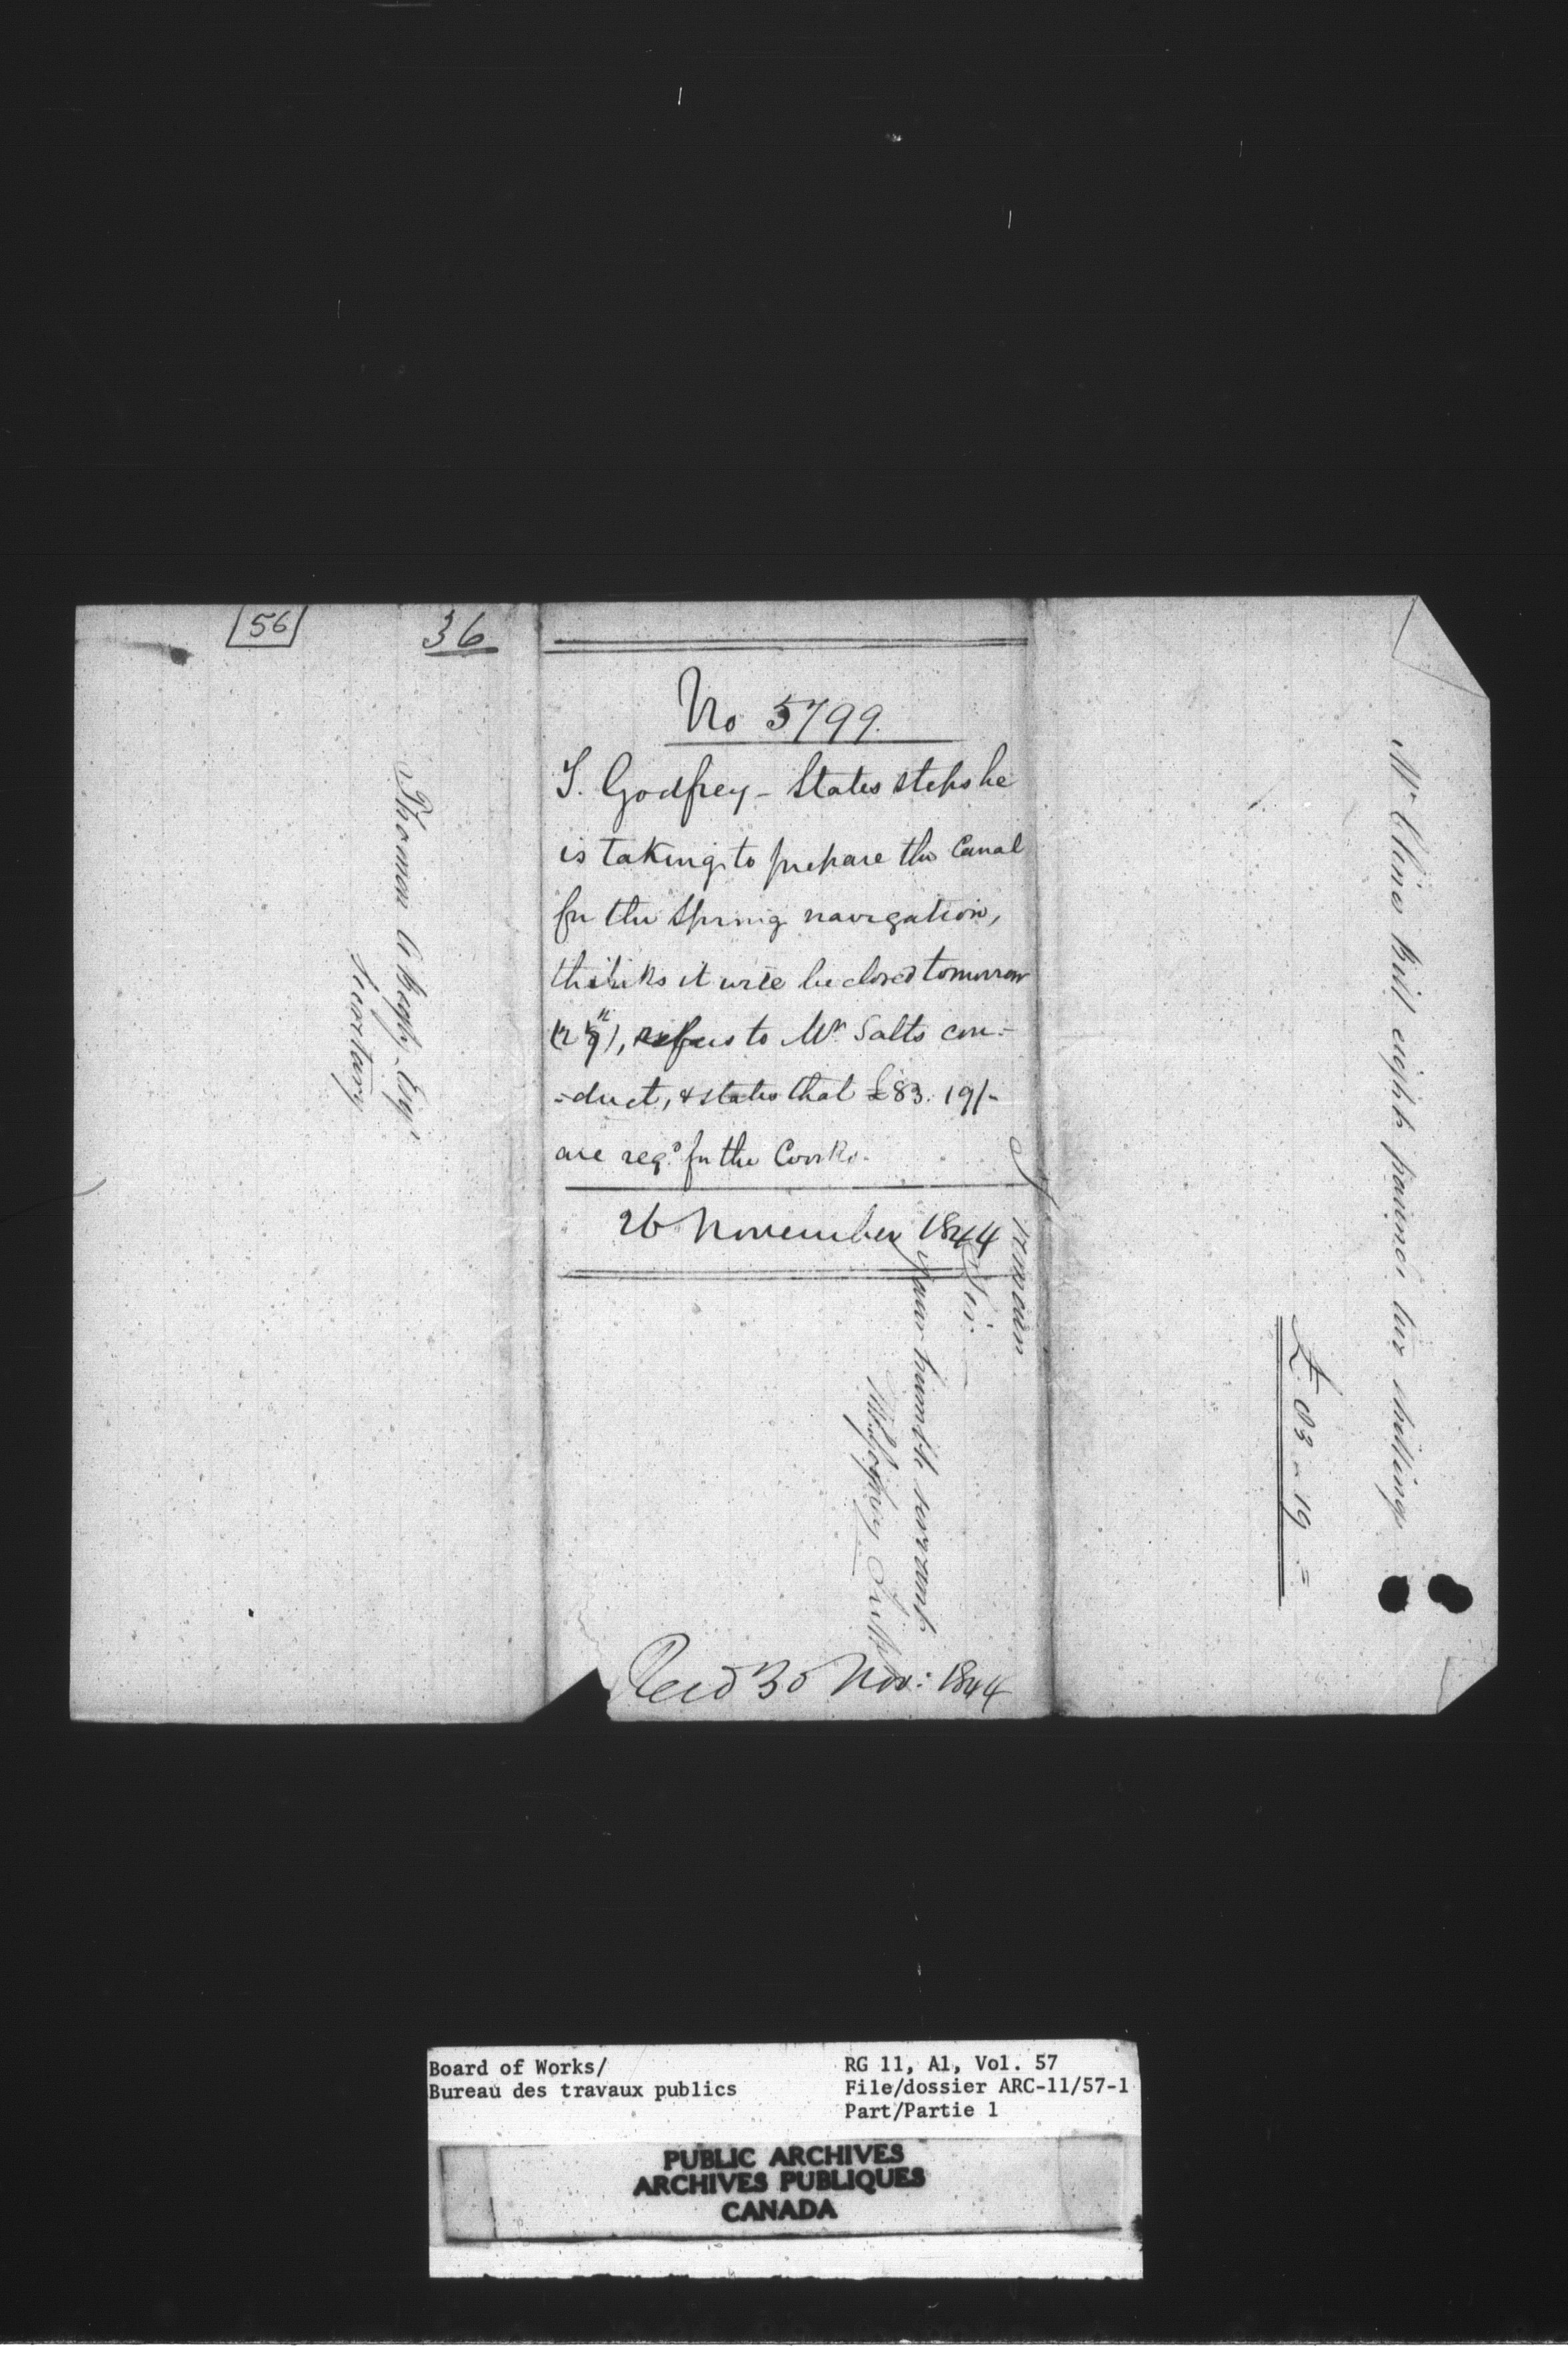 56
36
No 5799.
T. Godfrey - States steps he
is taking to prepare the Canal
for the Spring navigation,
thinks it will be closed tomorrow
refers to Mr Salts con=
=duct, & states that £83. 19/-
are reqd for the Works.
26 November 1844
Recd 30 Nov: 1844
Thomas A Begly Esqr
Secretary
I remain
Sir
your humble servant
Godfrey
Mr Bill eight pounds two shillings
£ 83 " 19 =
Board of Works/
Bureau des travaux publics
RG 11, A1, Vol. 57
File/dossier ARC-11/57-1
Part/Partie 1
PUBLIC ARCHIVES
ARCHIVES PUBLIQUES
CANADA